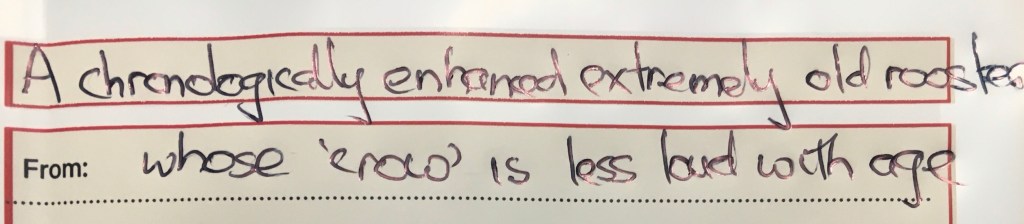 A chronologically enhanced extremely old rooster
From: whose 'crow' is less loud with age